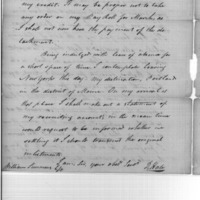 my credit. It may be proper not to take
any order on my Pay Roll for March, as
I shall not have the payment of the de-
tachment.
Being indulged with leave of absence for
a short space of time, I contemplate leaving
New York this day my destination, Portland
in the district of Maine. On my arrival at
that place I shall make out a statement of
my recruiting accounts in the mean time
would request to be informed whether in
settling it I should transmit the original
William Simmons
I am Sir your obet Servt